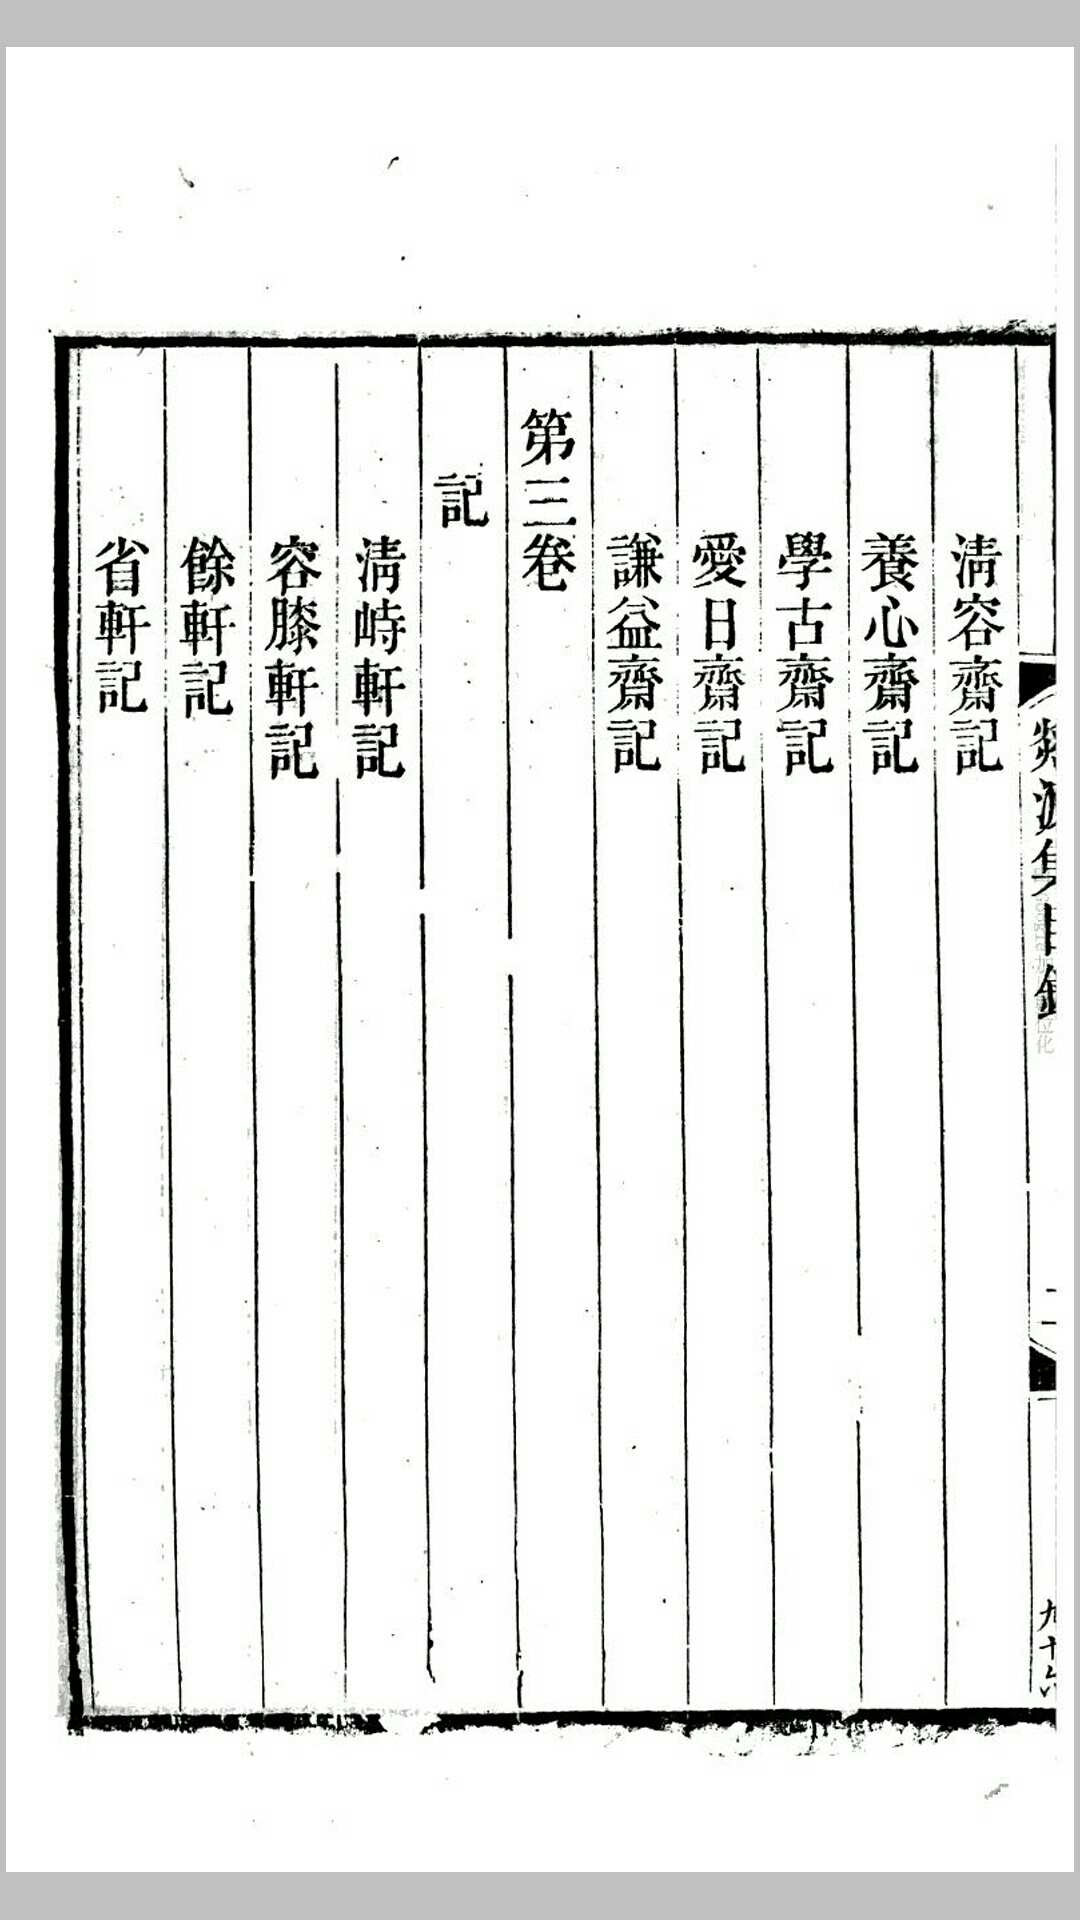 清容齋記
養心齋記
學古齋記
愛日齋記
謙益齋記
第三卷
記
清峙軒記
容膝軒記
餘軒記
省軒記
集目錄
九十六